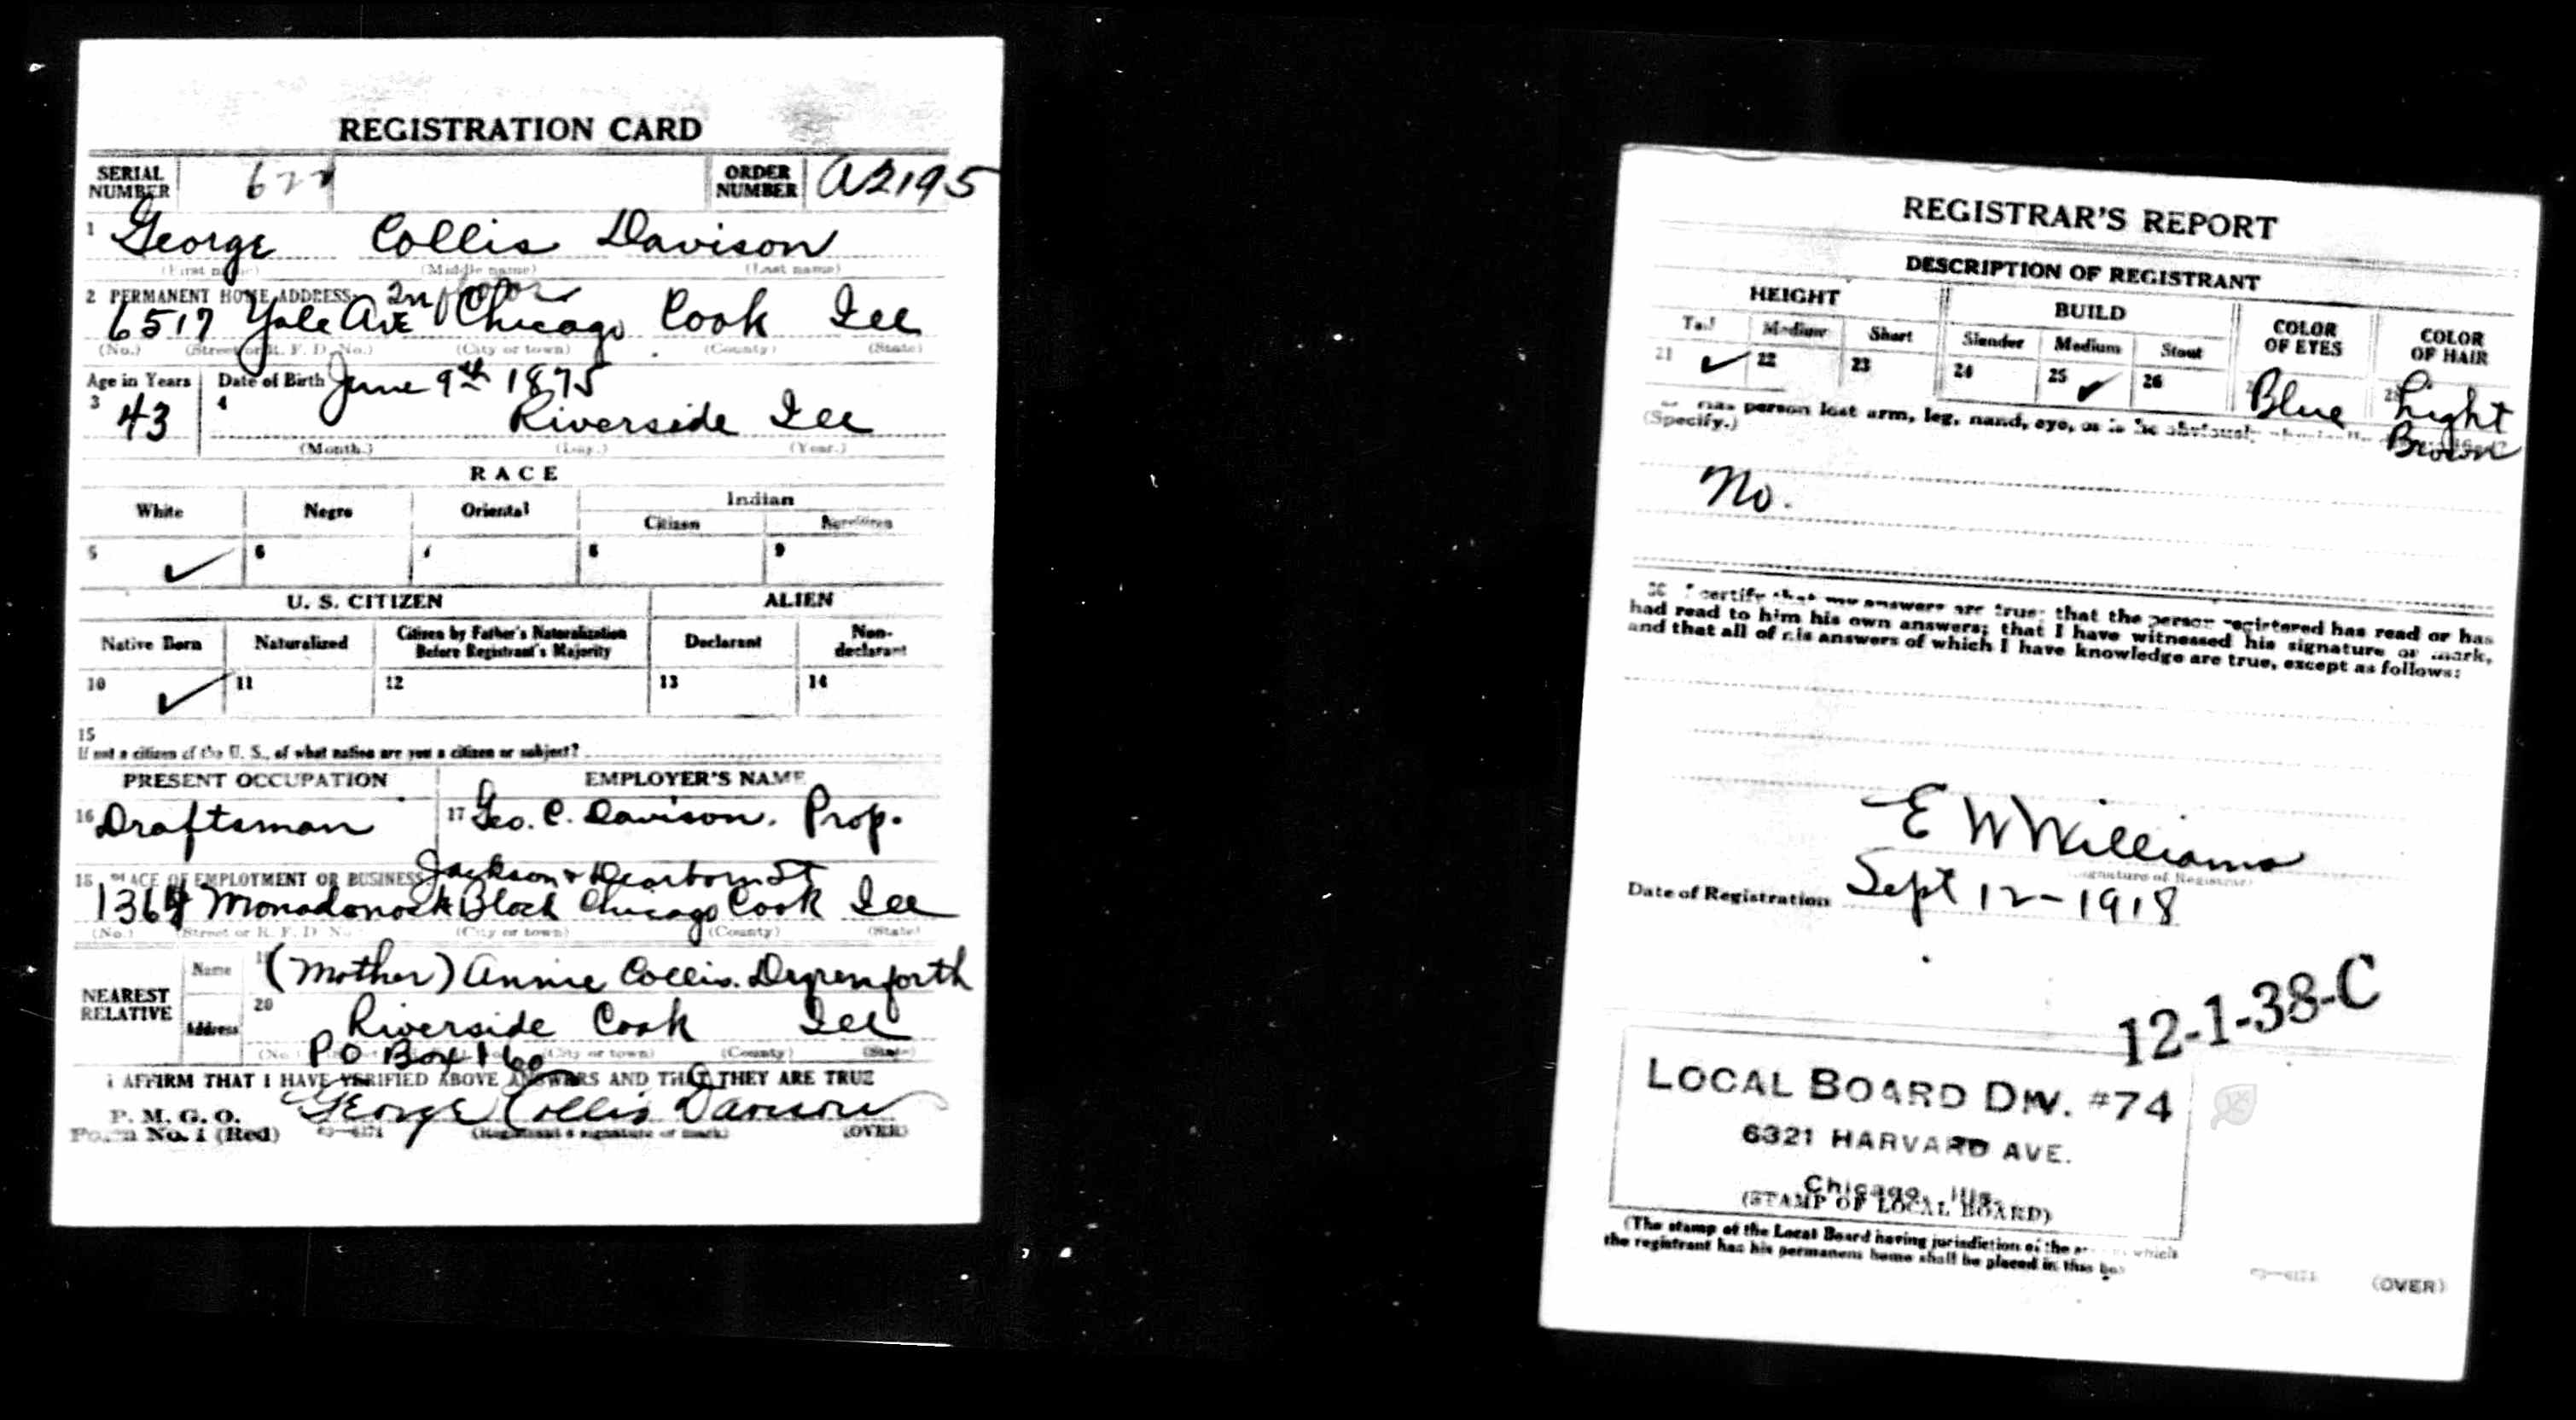 REGISTRATION CARD
SERIAL NUMBER 622 ORDER NUMBER A2195
1 George Collis Davison
(First name) (Middle name) (Last name)
2 PERMANENT HOME ADDRESS 2nd floor
6517 Yale Ave Chicago Cook Ill
(No.) (Street or R. F. D. No.) (City or town) (County) (State)
Age in Years Date of Birth June 9th 1875
3 43 4 Riverside Ill
(Month.) (Day.) (Year.)
RACE
White Negro Oriental Indian
Citizen Noncitizen
5 ✓ 6 7 8 9
U. S. CITIZEN ALIEN
Native Born Naturalized Citizen by Father's Naturalization Before Registrant's Majority Declarant Non-declarant
10 ✓ 11 12 13 14
15
If not a citizen of the U. S., of what nation are you a citizen or subject?
PRESENT OCCUPATION EMPLOYER'S NAME
16 Draftsman 17 Geo. C. Davison. Prop.
18 PLACE OF EMPLOYMENT OR BUSINESS Jackson & Dearborn St
1364 Monadnock Block Chicago Cook Ill
(No.) (Street or R. F. D. No.) (City or town) (County) (State)
NEAREST RELATIVE
Name 19 (Mother) Annie Collis. Dyrenforth
Address 20 Riverside Cook Ill
(No.) (City or town) (County) (State)
PO Box 160
I AFFIRM THAT I HAVE VERIFIED ABOVE ANSWERS AND THAT THEY ARE TRUE
P. M. G. O.
Form No. 1 (Red) George Collis Davison
(Registrant's signature or mark) (OVER)
REGISTRAR'S REPORT
DESCRIPTION OF REGISTRANT
HEIGHT BUILD COLOR OF EYES COLOR OF HAIR
Tall Medium Short Slender Medium Stout
21 ✓ 22 23 24 25 ✓ 26 Blue 28 Light Brown
has person lost arm, leg, hand, eye, or is he obviously
(Specify.)
No.
30 I certify that my answers are true; that the person registered has read or has
had read to him his own answers; that I have witnessed his signature or mark,
and that all of his answers of which I have knowledge are true, except as follows:
E W Williams
(Signature of Registrar)
Date of Registration Sept 12-1918
12-1-38-C
LOCAL BOARD DIV. #74
6321 HARVARD AVE.
Chicago, Ills.
(STAMP OF LOCAL BOARD)
(The stamp of the Local Board having jurisdiction of the area in which
the registrant has his permanent home shall be placed in this box
(OVER)